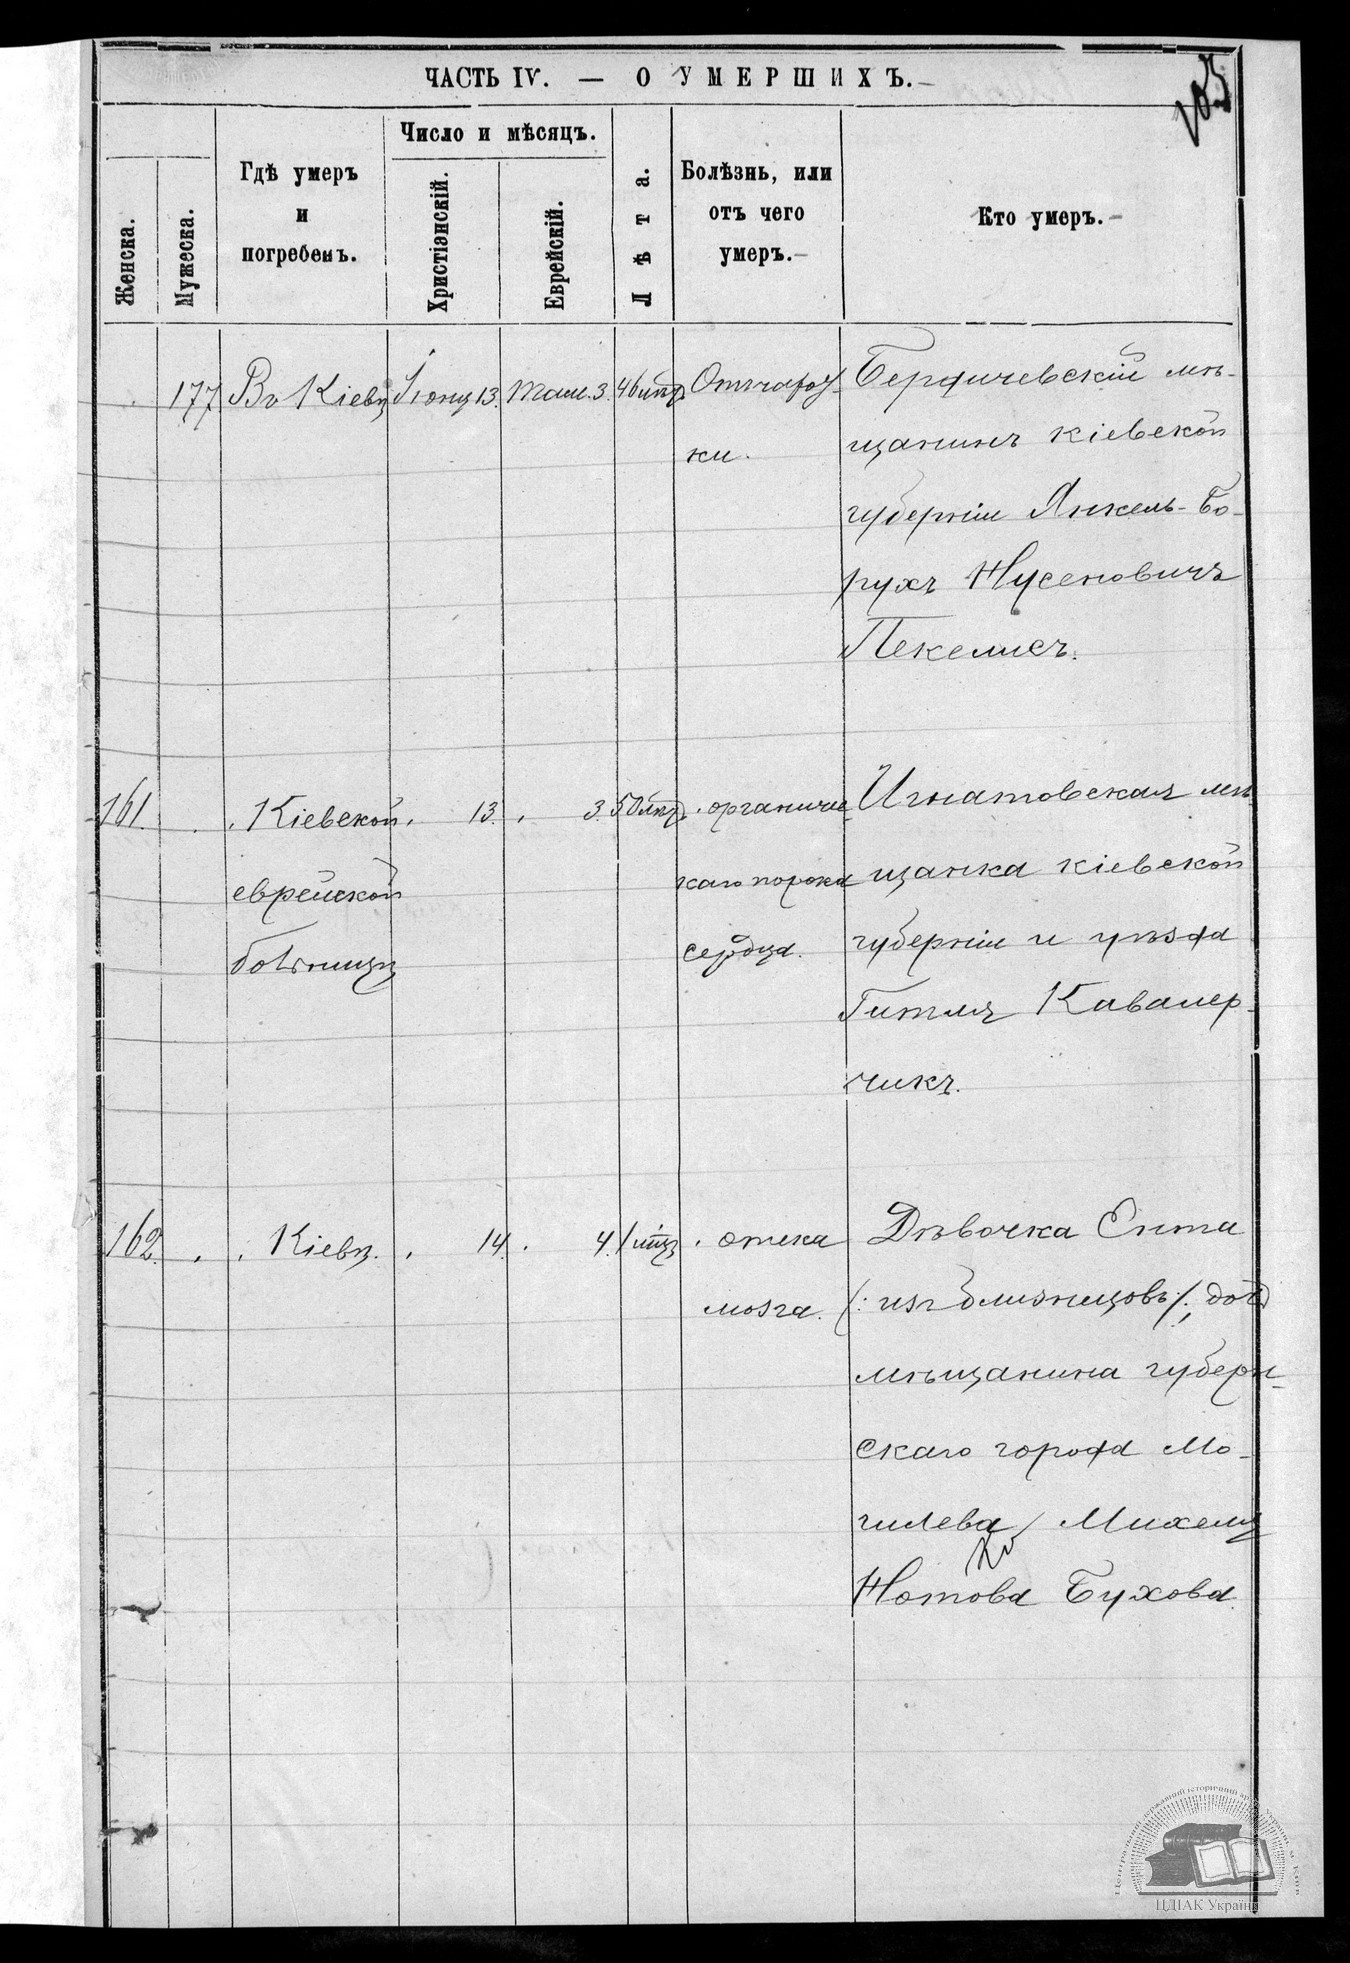 105
ЧАСТЬ IV. — О УМЕРШИХЪ.
Женска.
Мужеска.
Гдѣ умеръ
и
погребенъ.
Число и мѣсяцъ.
Христіэнскій.
Еврейскій.
Лѣта.
Болѣзнь, или
отъ чего
умеръ.
Кто умеръ.
177 Въ Кіевѣ Іюня 13. Там. 3. 46 лѣтъ Отъ чахот-
ки.
Бердичевскій мѣ-
щанинъ кіевской
губерніи Янкель-Бо-
рухъ Нусеновичъ
Пекелисъ.
161. Кіевской 13. 3. 50 лѣтъ органичес
еврейской
больницѣ
каго порока
сердца.
Игнатовская мѣ
щанка кіевской
губерніи и уѣзда
Гитля Кавалер-
чикъ.
162. Кіевѣ. 14. 4. 1 отека
мозга.
Дѣвочка Ента
/: изъ близнецовъ :/, дочь
мѣщанина губерн-
скаго города Мо-
гилева Михеля
Нотова Бухова.
ЦДІАК України